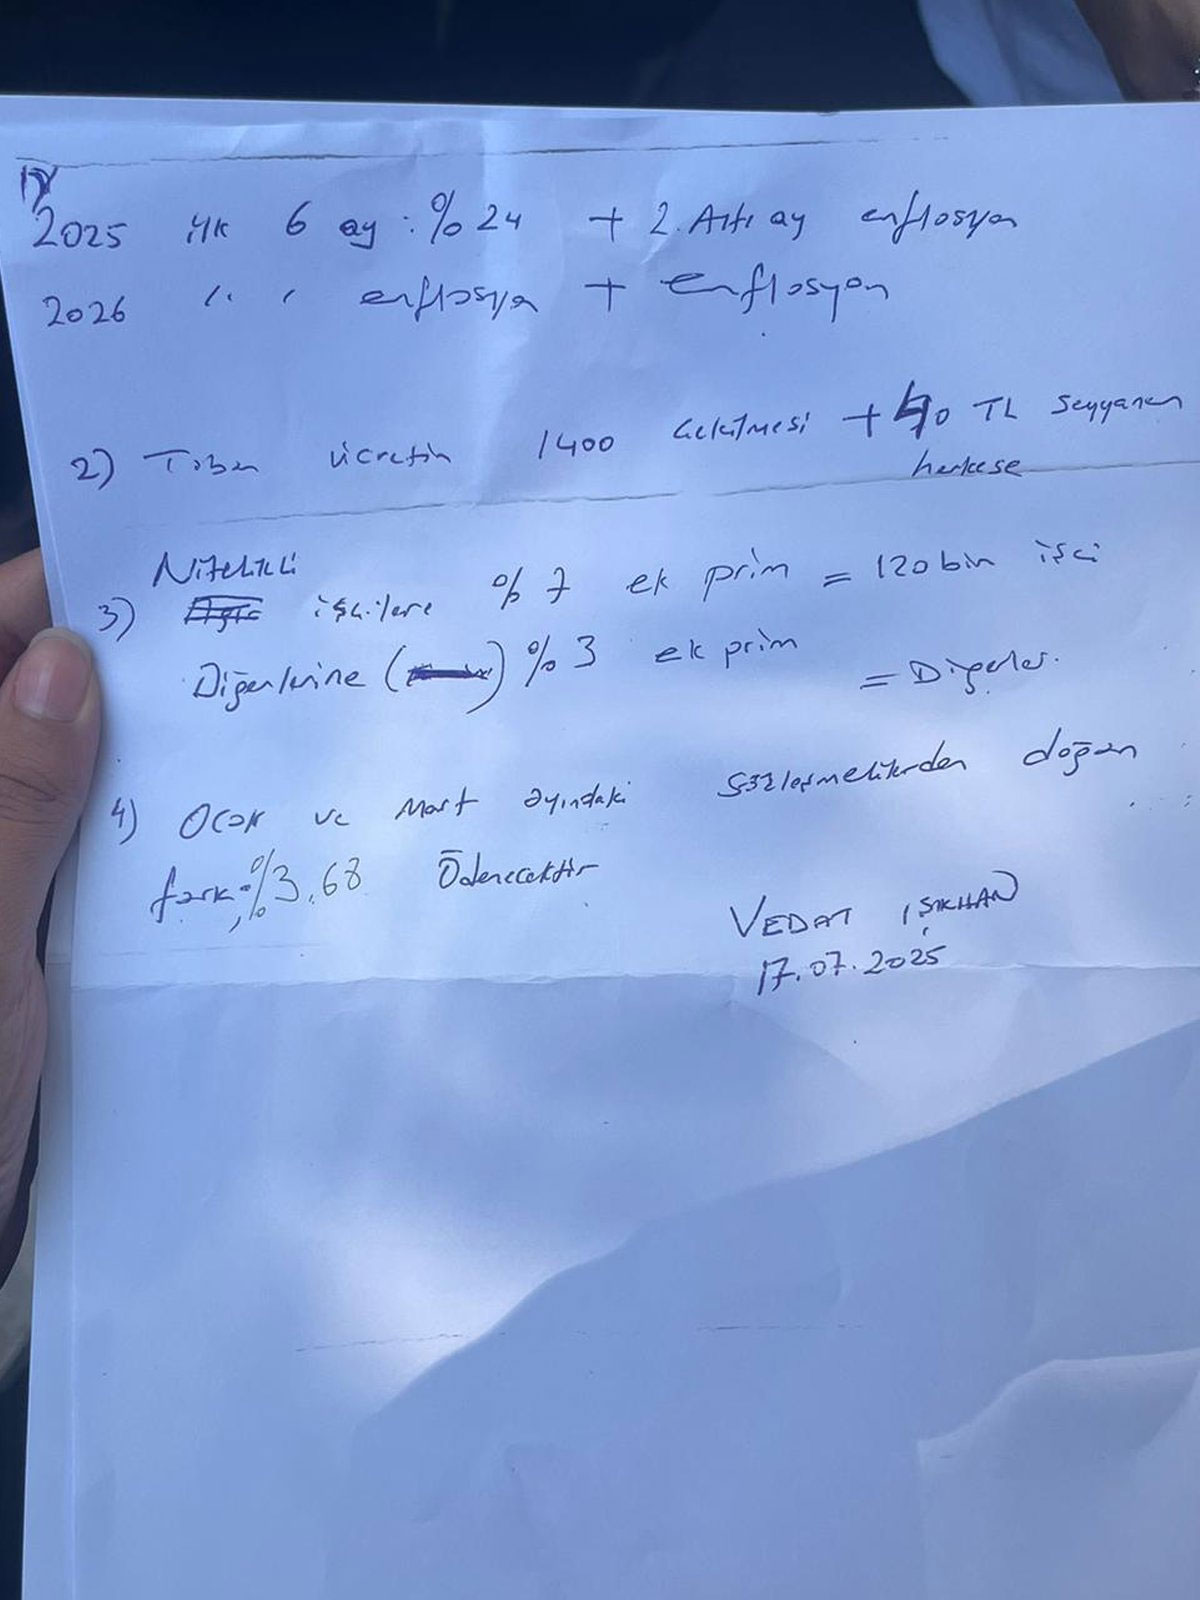 1)
2025 ilk 6 ay : %24 + 2. Altı ay enflasyon
2026 " " enflasyon + enflasyon
2) Taban ücretin 1400 çekilmesi + 40 TL seyyanen
herkese
Nitelikli
3) işçilere %7 ek prim = 120 bin işçi
Diğerlerine ( ) %3 ek prim = Diğerler.
4) Ocak ve Mart ayındaki sözleşmelilerden doğan
fark %3,68 Ödenecektir
VEDAT IŞIKHAN
17.07.2025